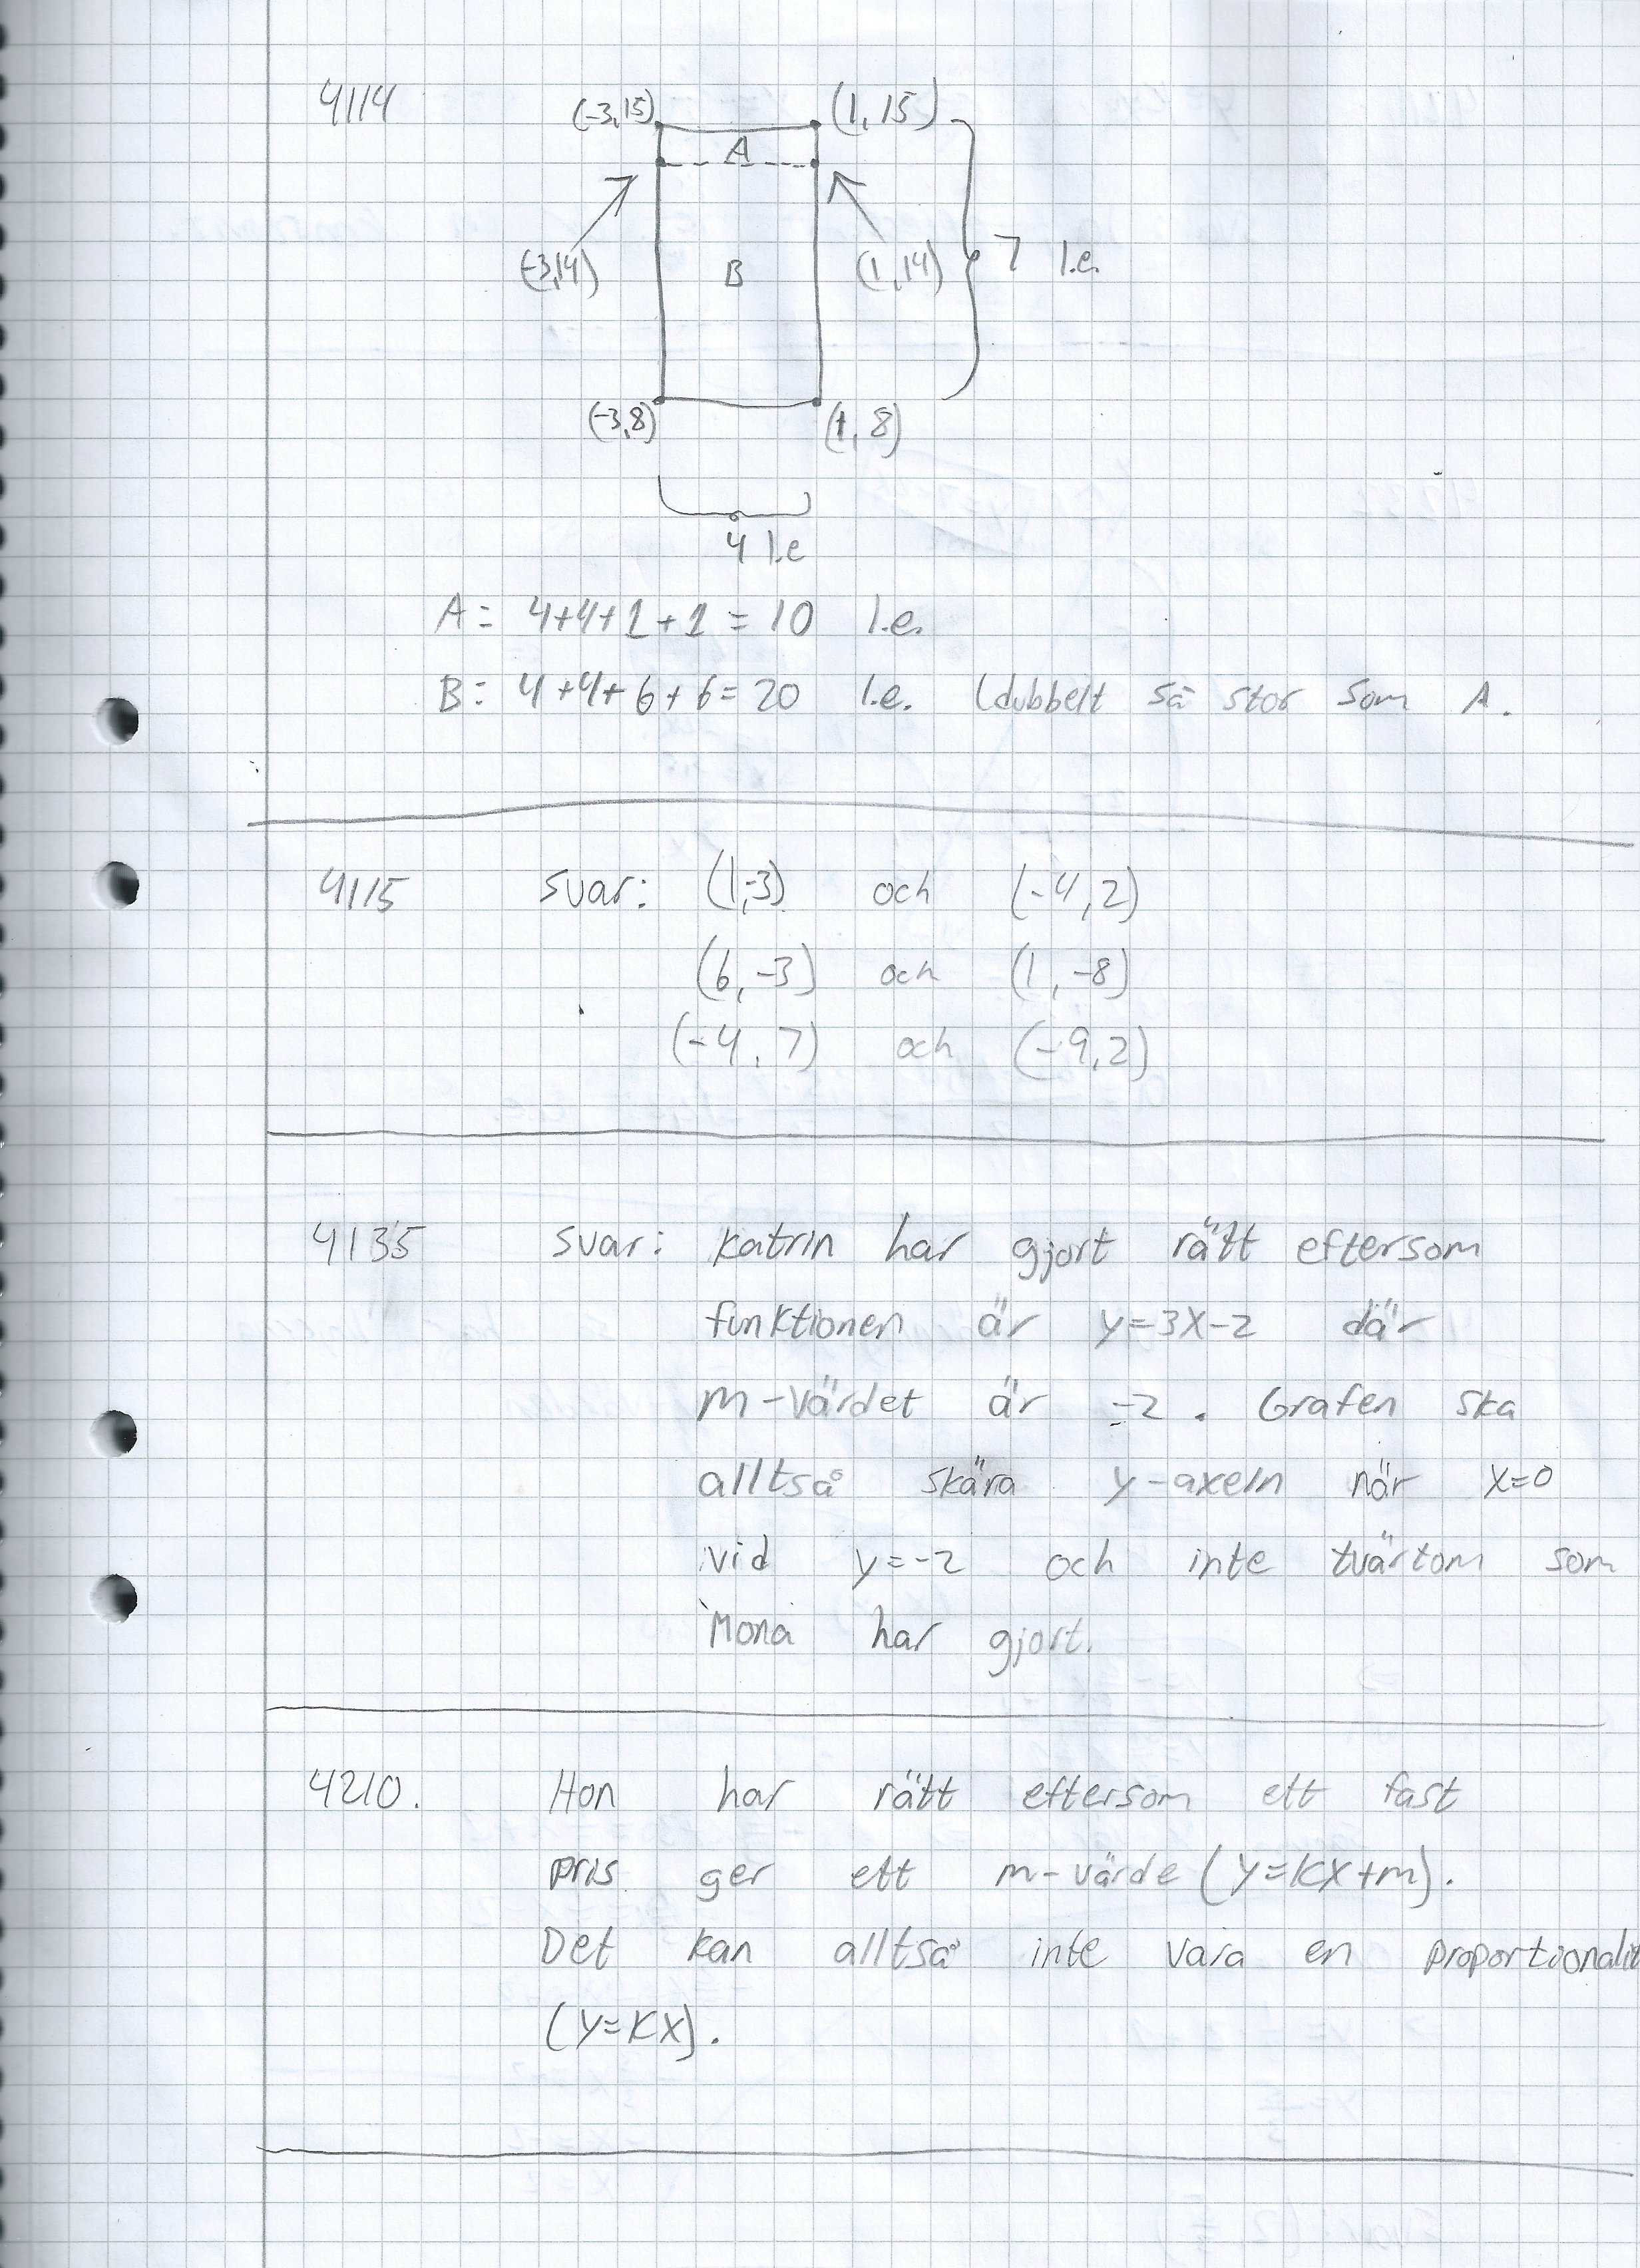 4114
(-3,15) (1,15)
A
(-3,14) B (1,14) 7 l.e.
(-3,8) (1,8)
4 l.e
A= 4+4+1+1=10 l.e.
B= 4+4+6+6=20 l.e. (dubbelt så stor som A.
4115 svar: (1,-3) och (-4,2)
(6,-3) och (1,-8)
(-4,7) och (-9,2)
4135 svar: Katrin har gjort rätt eftersom
funktionen är y=3x-2 där
m-värdet är -2. Grafen ska
alltså skära y-axeln när x=0
vid y=-2 och inte tvärtom som
Mona har gjort.
4210. Hon har rätt eftersom ett fast
pris ger ett m-värde (y=kx+m).
Det kan alltså inte vara en proportionalit
(y=kx).